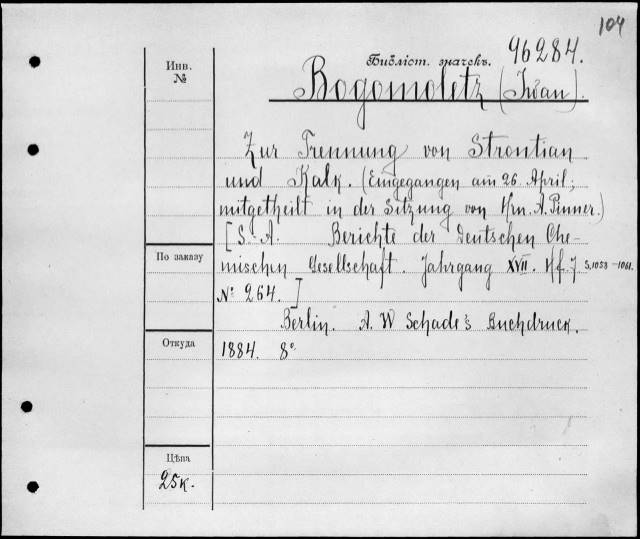 104
Инв.
№
Библіот. значекъ. 96284.
Bogomoletz (Iwan).
Zur Trennung von Strontian
und Kalk. (Eingegangen am 26. April;
mitgetheilt in der Sitzung von Hrn. A. Pinner.)
[S.-A. Berichte der Deutschen Che-
mischen Gesellschaft. Jahrgang XVII. Hf. 7 S. 1058-1061.
№ 264.]
Berlin. A. W Schade's Buchdruck.
1884. 8°.
По заказу
Откуда
Цѣна
25к.